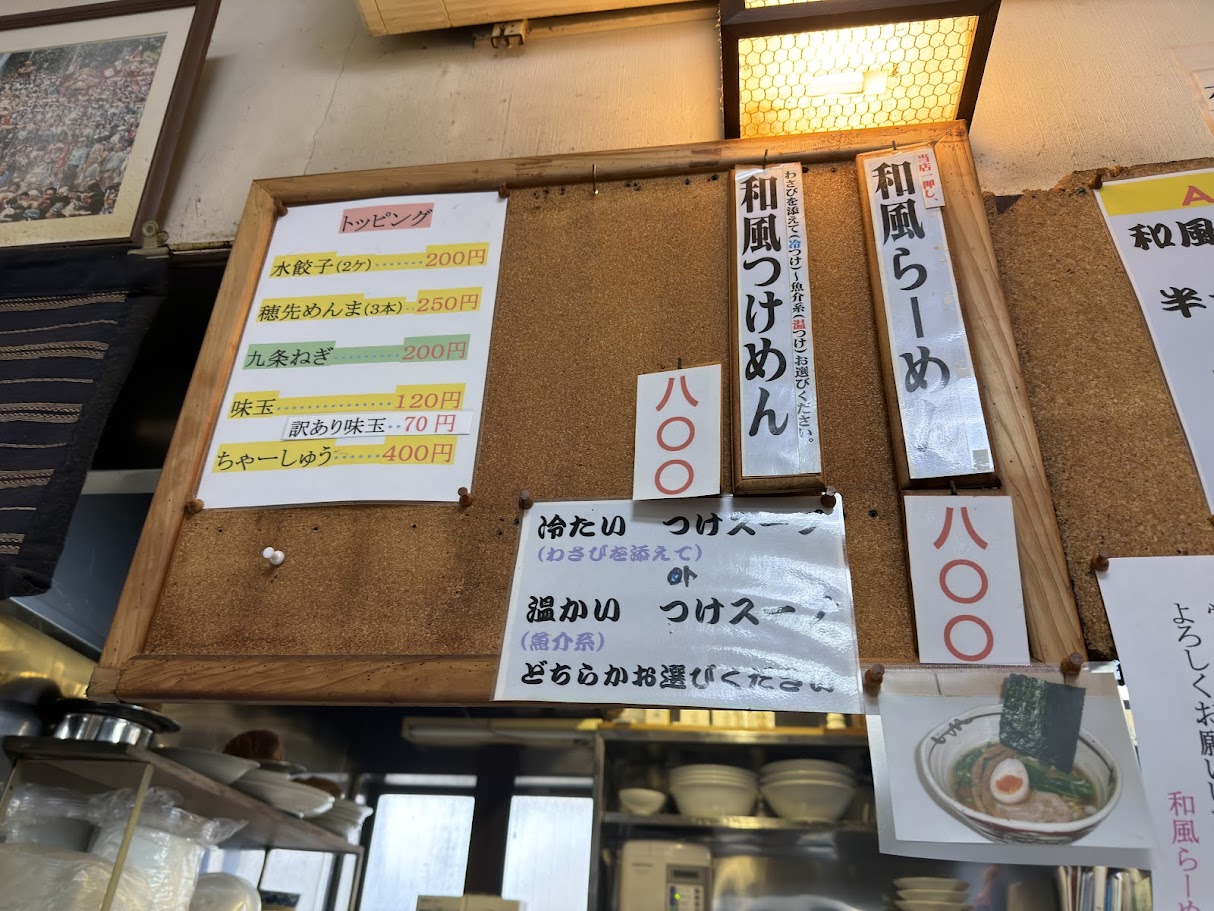 トッピング
水餃子(2ケ)‥‥‥200円
穂先めんま(3本)‥250円
九条ねぎ‥‥‥‥200円
味玉‥‥‥‥‥‥120円
訳あり味玉‥70円
ちゃーしゅう‥‥‥400円
和風つけめん
わさびを添えて(冷つけ)~魚介系(温つけ)お選びください。
八〇〇
当店一押し、
和風らーめん
八〇〇
冷たい つけスープ
(わさびを添えて)
or
温かい つけスープ
(魚介系)
どちらかお選びください
A
和風
半
よろしくお願いい
和風らーめ